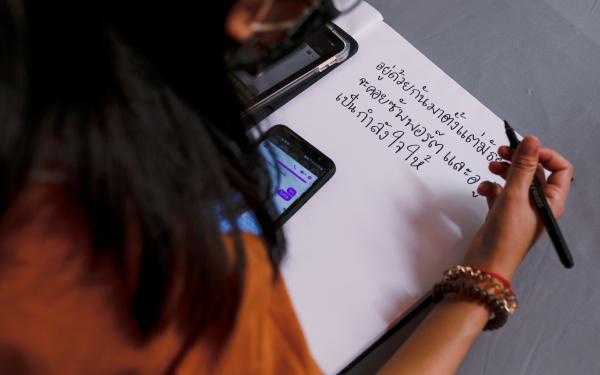 อยู่ด้วยกันมาตั้งแต่มัธ
จะคอยซัพพอร์ต และอยู่
เป็นกำลังใจให้